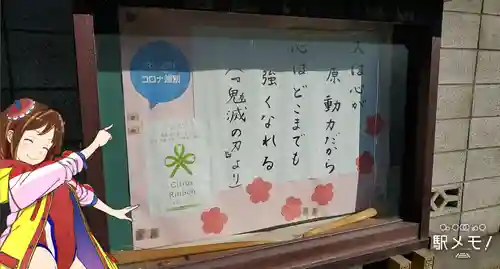 人は心が
原動力だから
心はどこまでも
強くなれる
〝鬼滅の刃〟より
コロナ差別
Citrus
Ribbon
駅メモ!